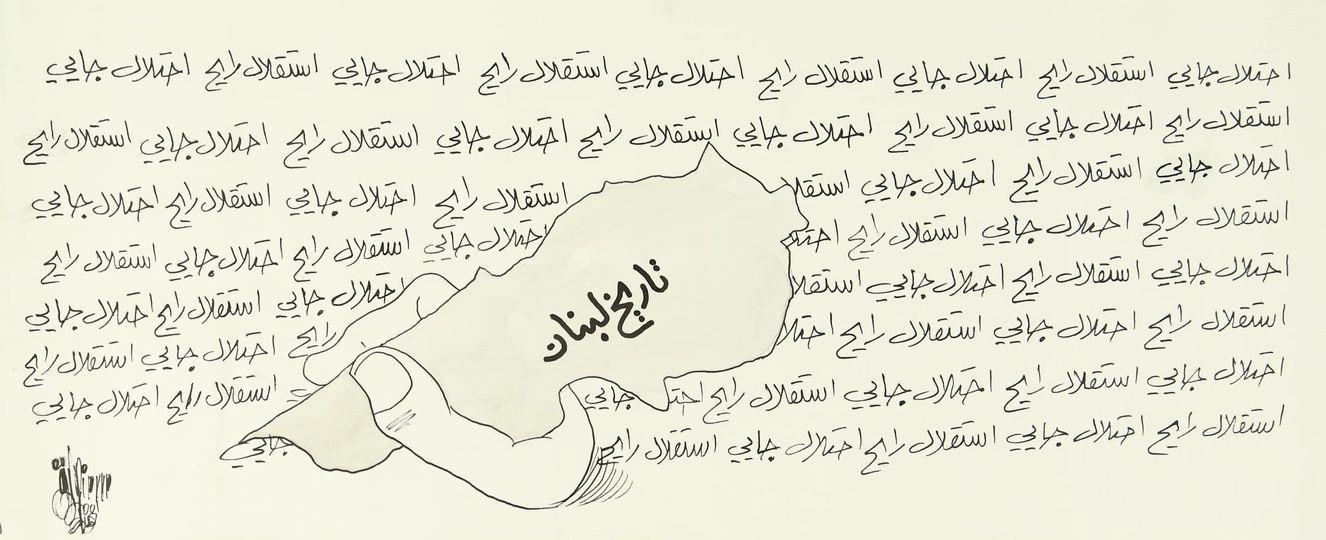 احتلال جايي استقلال رايح احتلال جايي استقلال رايح احتلال جايي استقلال رايح احتلال جايي استقلال رايح احتلال جايي
استقلال رايح احتلال جايي استقلال رايح احتلال جايي استقلال رايح احتلال جايي استقلال رايح احتلال جايي استقلال رايح
احتلال جايي استقلال رايح احتلال جايي استقلا استقلال رايح احتلال جايي استقلال رايح احتلال جايي
استقلال رايح احتلال جايي استقلال رايح احتـ احتلال جايي استقلال رايح احتلال جايي استقلال رايح
احتلال جايي استقلال رايح احتلال جايي استقلا احتلال جايي استقلال رايح احتلال جايي
استقلال رايح احتلال جايي استقلال رايح احتلا رايح احتلال جايي استقلال رايح
احتلال جايي استقلال رايح احتلال جايي استقلال رايح احتـ جايي استقلال رايح احتلال جايي
استقلال رايح احتلال جايي استقلال رايح احتلال جايي استقلال رايح جايي
تاريخ لبنان